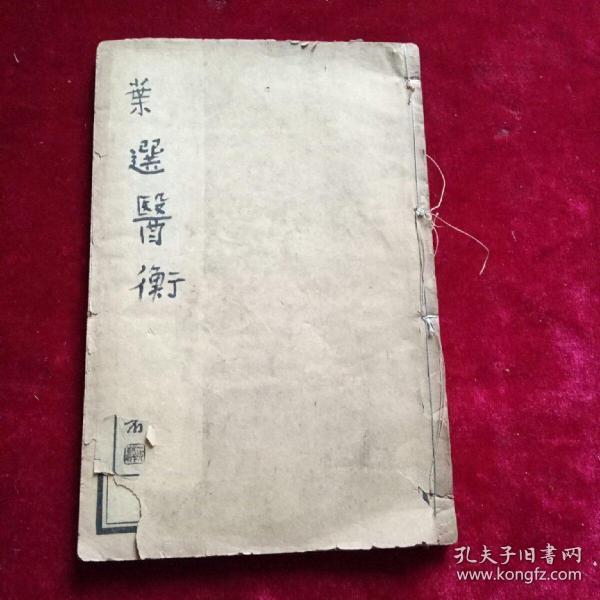 葉選醫衡
孔夫子旧书网
www.kongfz.com